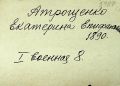 Атрощенко
Екатерина
1890.
I военная 8.